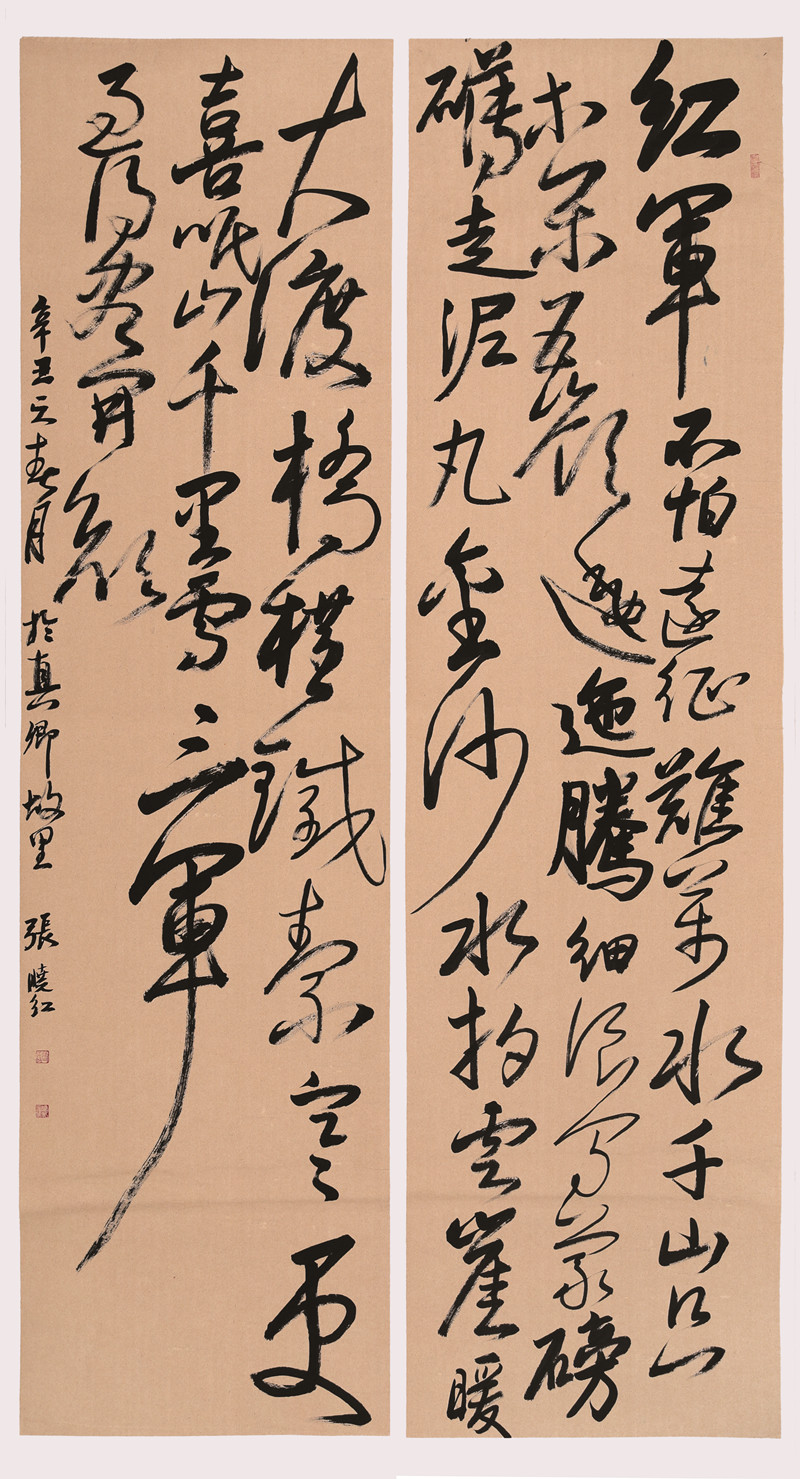 红軍不怕遠征難萬水千山只
等閑五嶺逶迤騰細浪烏蒙磅
礴走泥丸金沙水拍雲崖暖
大渡橋橫鐵索寒更
喜岷山千里雪三軍
過後盡開顏
辛丑之春月於真卿故里 張曉红